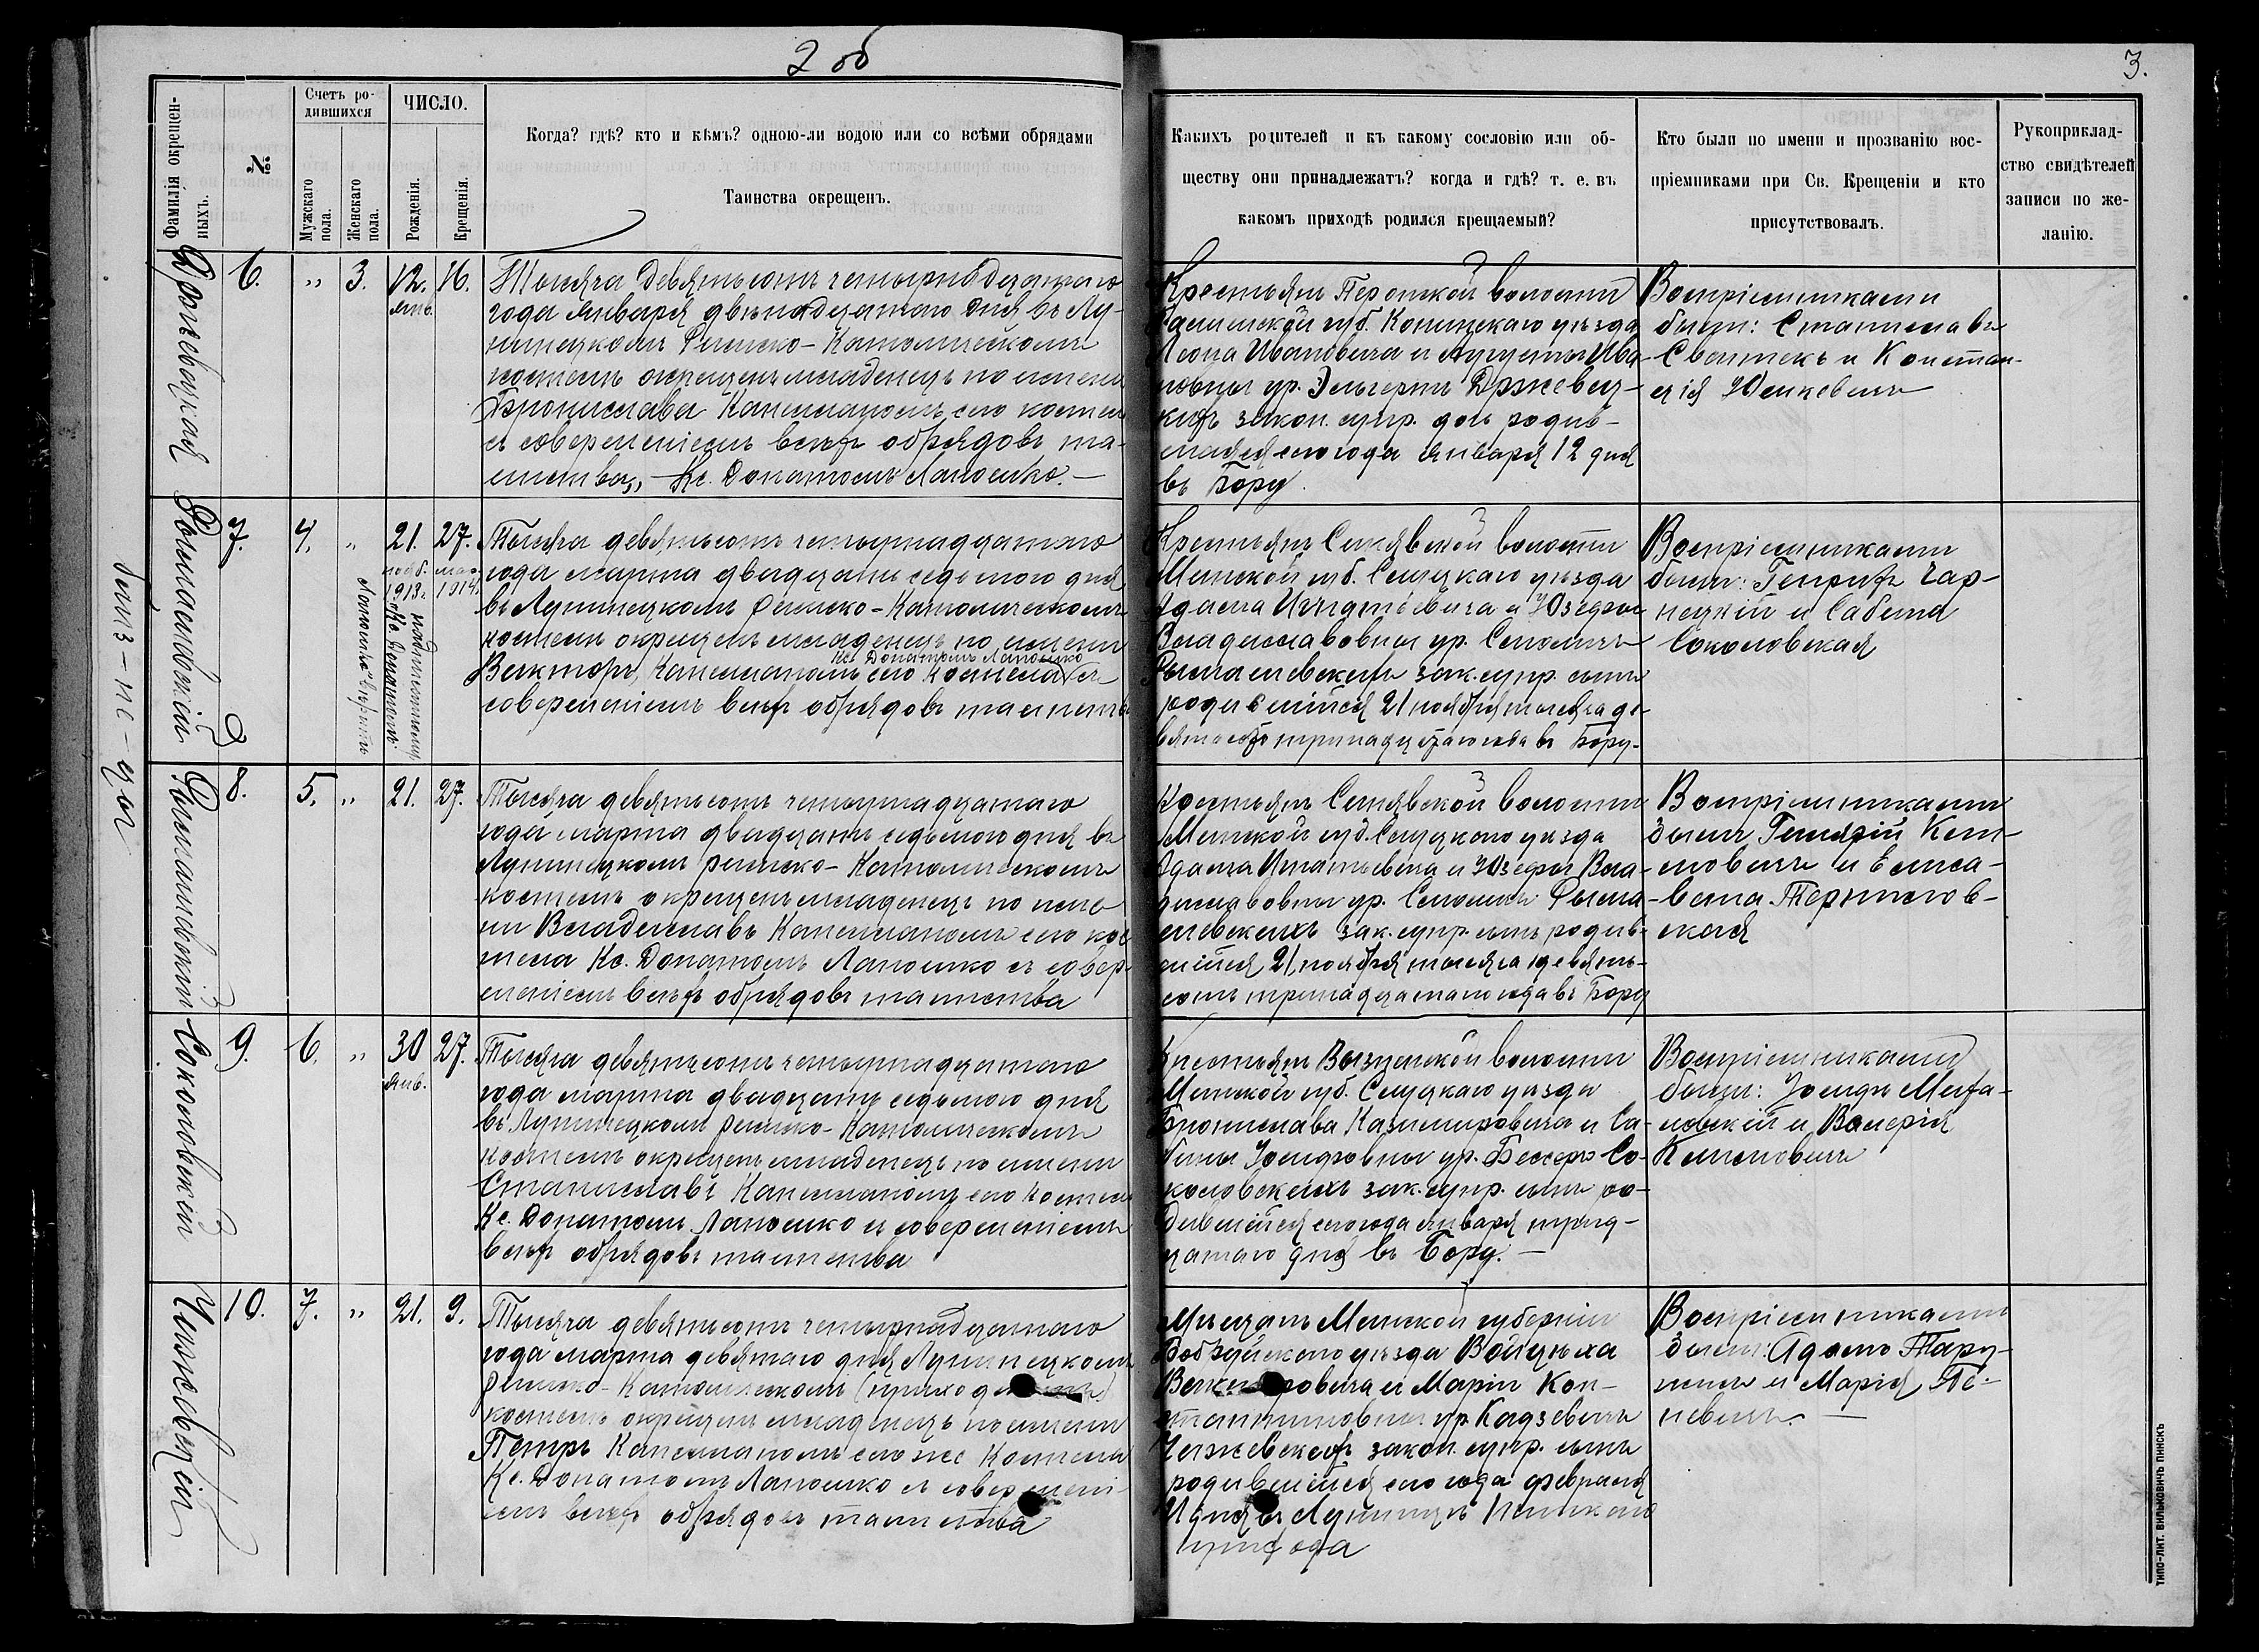 2 об
3.
Фамилія окрещен-
ныхъ.
№
Счетъ ро-
дившихся
Мужскаго
пола.
Женскаго
пола.
ЧИСЛО.
Рожденія.
Крещенія.
Когда? гдѣ? кто и кѣмъ? одною-ли водою или со всѣми обрядами
Таинства окрещенъ.
Какихъ родителей и къ какому сословію или об-
ществу они принадлежатъ? когда и гдѣ? т. е. въ
какомъ приходѣ родился крещаемый?
Кто были по имени и прозванію вос-
пріемниками при Св. Крещеніи и кто
присутствовалъ.
Рукоприклад-
ство свидѣтелей
записи по же-
ланію.
Држевецкая
6.
„
3.
12.
янв.
16.
Тысяча девятьсотъ четырнадцатаго
года января двѣнадцатаго дня въ Лу-
нинецкомъ Римско-Католическомъ
костелѣ окрещенъ младенецъ по имени
Бронислава Капелланомъ сего костела
съ совершеніемъ всѣхъ обрядовъ та-
инства, – Кс. Донатомъ Лапошко. –
Крестьянъ волости
губ. Конинскаго уѣзда
Леона Ивановича и Августы Ива-
новны ур. Эльгертъ Држевец-
кихъ закон. супр. дочь родив-
шаяся сего года января 12 дня
въ Бору.
Воспріемниками
были: Станиславъ
Свентекъ и Констан-
ція Юшкевичъ
Рымашевскій
7.
4.
„
21.
нояб.
1913 г.
27.
мар.
1914.
Тысяча девятьсотъ четырнадцатаго
года марта двадцать седьмого дня
въ Лунинецкомъ римско-Католическомъ
костелѣ окрещенъ младенецъ по имени
Кс. Донатомъ Лапошко
Викторъ, Капелланомъ сего костела съ
совершеніемъ всѣхъ обрядовъ таинства
„Кс. Донатомъ
Лапошко" вѣрить
Крестьянъ Синявской волости
Минской губ. Слуцкаго уѣзда
Адама Игнатьевича и Юзефы
Владиславовны ур. Семашко
Рымашевскихъ зак. супр. сынъ
родившійся 21 ноября тысяча де-
вятьсотъ тринадцатаго года въ Бору.
Воспріемниками
были: Генрихъ Чар-
нецкій и Сабина
Соколовская
Рымашевскій
8.
5.
„
21.
27.
Тысяча девятьсотъ четырнадцатаго
года марта двадцать седьмого дня въ
Лунинецкомъ римско-Католическомъ
костелѣ окрещенъ младенецъ по име-
ни Владиславъ Капелланомъ сего кос-
тела Кс. Донатомъ Лапошко съ совер-
шеніемъ всѣхъ обрядовъ таинства
Крестьянъ Синявской волости
Минской губ. Слуцкаго уѣзда
Адама Игнатьевича и Юзефы Вла-
диславовны ур. Рыма-
шевскихъ зак. супр. сынъ родив-
шійся 21 ноября тысяча девять-
сотъ тринадцатаго года въ Бору
Воспріемниками
были и Елиса-
вета
Соколовскій
9.
6.
„
30
янв.
27.
Тысяча девятьсотъ четырнадцатаго
года марта двадцать седьмого дня
въ Лунинецкомъ римско-Католическомъ
костелѣ окрещенъ младенецъ по имени
Станиславъ Капелланомъ сего костела
Кс. Донатомъ Лапошко съ совершеніемъ
всѣхъ обрядовъ таинства
Крестьянъ Вызнянской волости
Минской губ. Слуцкаго уѣзда
Бронислава Казимировича и Са-
бины Іосифовны ур. Со-
коловскихъ зак. супр. сынъ ро-
дившійся сего года января трид-
цатаго дня въ Бору. –
Воспріемниками
были: Іосифъ Миха-
ловскій и Валерія
Климовичъ
Чижевскій
10.
7.
„
21.
9.
Тысяча девятьсотъ четырнадцатаго
года марта девятаго дня Лунинецкомъ
римско-Католическомъ
костелѣ окрещенъ младенецъ по имени
Петръ Капелланомъ сего же костела
Кс. Донатомъ Лапошко съ совершені-
емъ всѣхъ обрядовъ таинства
Мѣщанъ Минской губерніи
Бобруйскаго уѣзда Войцѣха
и Маріи Кон-
стантиновны ур. Кадзевичъ
Чижевскихъ закон. супр. сынъ
родившійся сего года февраля
21 дня въ Лунинцѣ Пинскаго
прихода
Воспріемниками
были: Адамъ
и Марія
ТИПО-ЛИТ. ВИЛЬКОВИЧЪ ПИНСКЪ